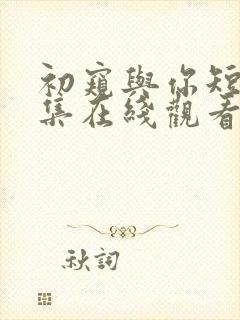 初窺與你短
集在綫觀看
秋詞